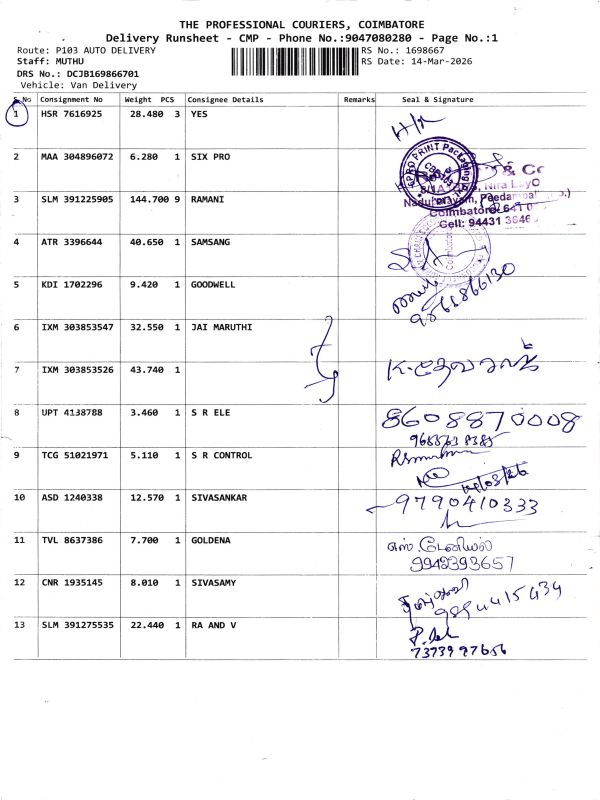 THE PROFESSIONAL COURIERS, COIMBATORE
Delivery Runsheet - CMP - Phone No.:9047080280 - Page No.:1
Route: P103 AUTO DELIVERY
RS No.: 1698667
Staff: MUTHU
RS Date: 14-Mar-2026
DRS No.: DCJB169866701
Vehicle: Van Delivery
S.No Consignment No Weight PCS Consignee Details Remarks Seal & Signature
1 HSR 7616925 28.480 3 YES
2 MAA 304896072 6.280 1 SIX PRO
PRO PRINT Packaging
& Co
3 SLM 391225905 144.700 9 RAMANI
Coimbatore
Cell: 94431
4 ATR 3396644 40.650 1 SAMSANG
5 KDI 1702296 9.420 1 GOODWELL
9566866130
6 IXM 303853547 32.550 1 JAI MARUTHI
7 IXM 303853526 43.740 1
8 UPT 4138788 3.460 1 S R ELE 8608870008
9 TCG 51021971 5.110 1 S R CONTROL
14/03/26
10 ASD 1240338 12.570 1 SIVASANKAR 9790410333
11 TVL 8637386 7.700 1 GOLDENA எஸ். டேனியல்
9942393657
12 CNR 1935145 8.010 1 SIVASAMY
9894415434
13 SLM 391275535 22.440 1 RA AND V
7373997656